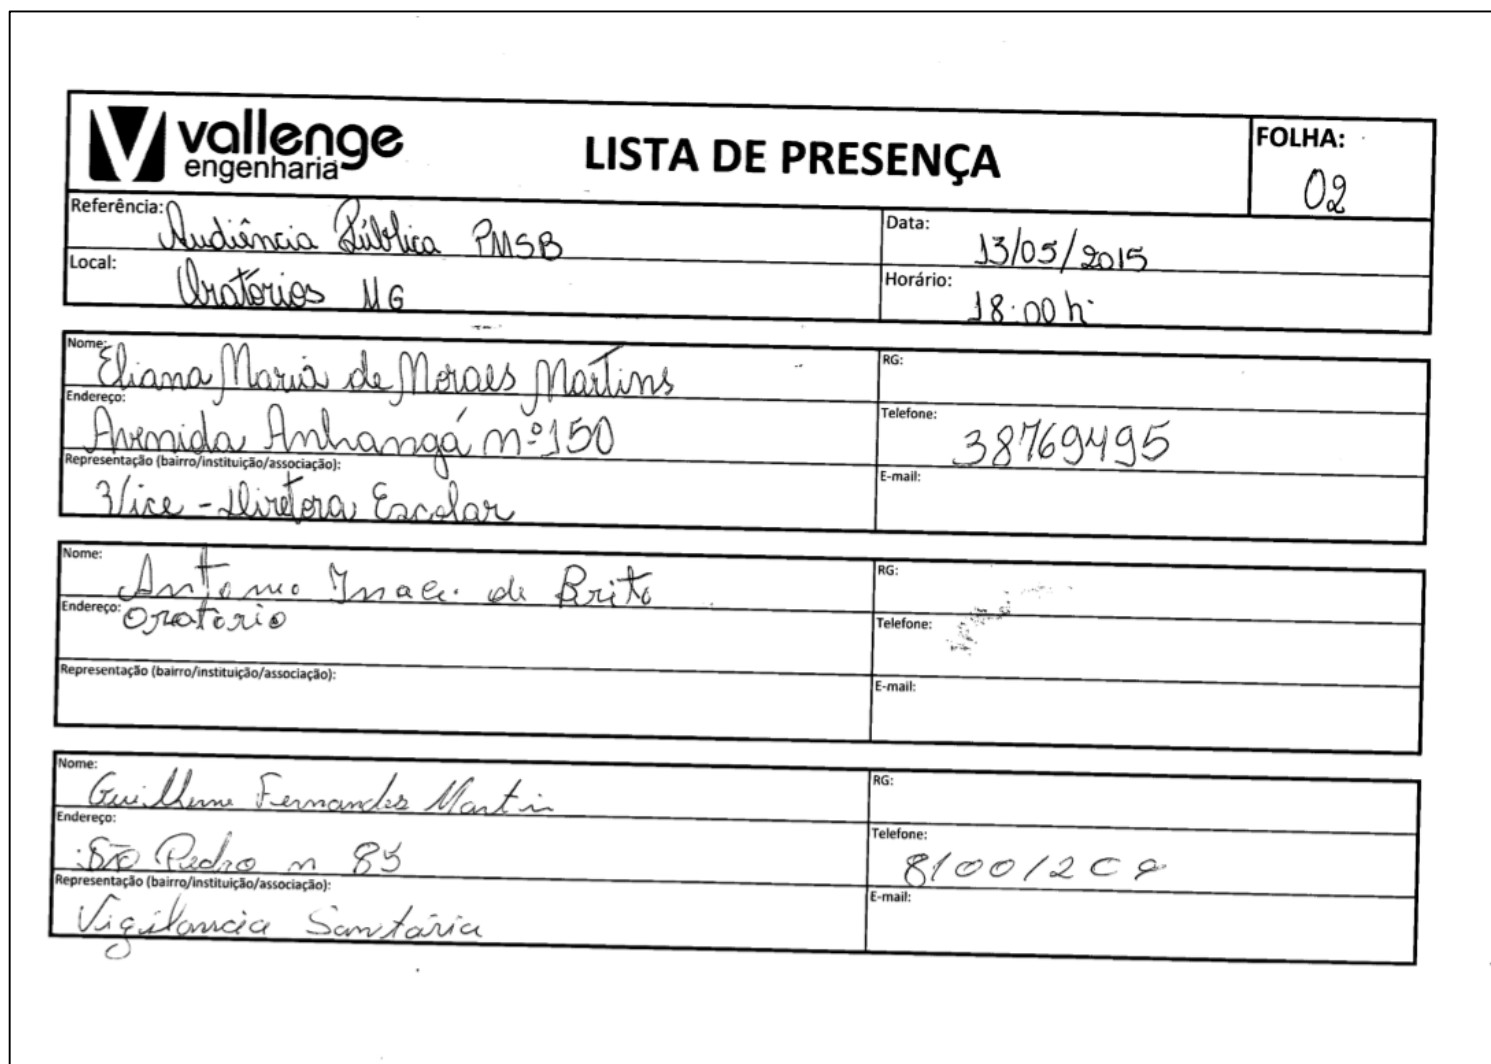 vallenge
engenharia
LISTA DE PRESENÇA
FOLHA:
02
Referência: Audiência Pública PMSB
Data: 13/05/2015
Local: Oratórios MG
Horário: 18:00 h
Nome: Eliana Maria de Moraes Martins
RG:
Endereço: Avenida Anhangá nº 150
Telefone: 38769495
Representação (bairro/instituição/associação):
Vice-Diretora Escolar
E-mail:
Nome: Antonio de Brito
RG:
Endereço: Oratorio
Telefone:
Representação (bairro/instituição/associação):
E-mail:
Nome: Guilherme Fernandes Martin
RG:
Endereço:
São Pedro n 85
Telefone:
Representação (bairro/instituição/associação):
Vigilancia Sanitária
E-mail: